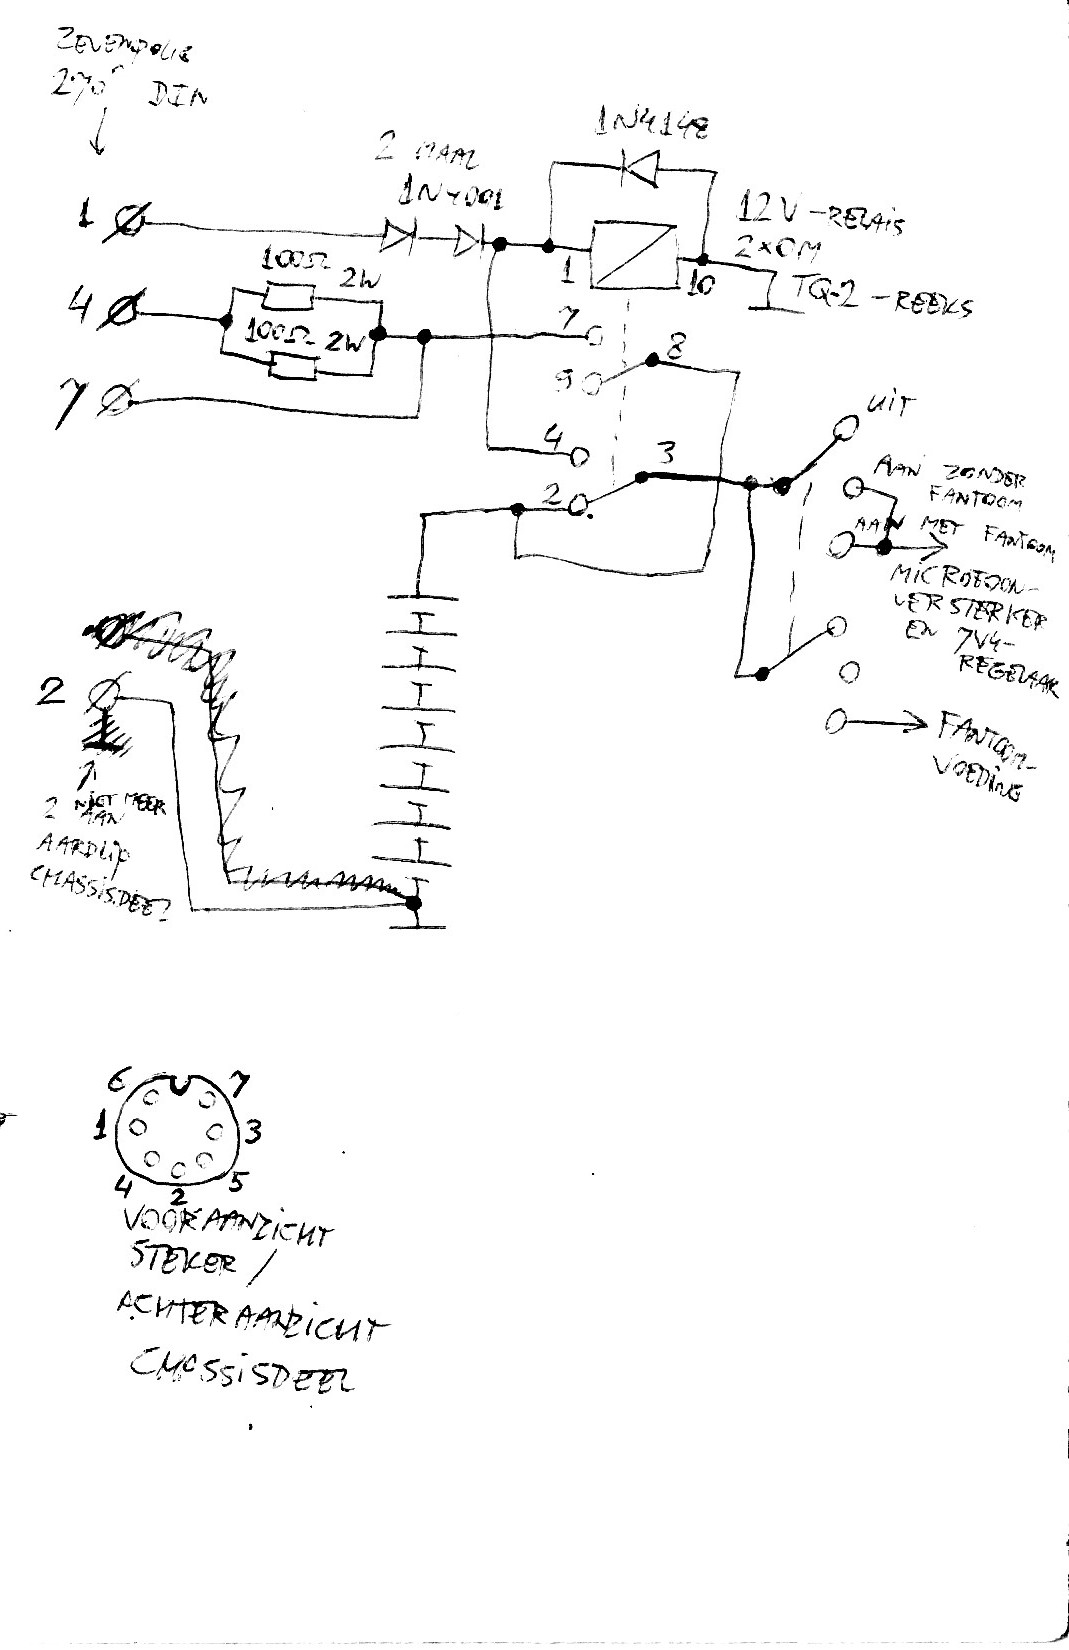 ZEVENPOLIG
270° DIN
1N4148
2 MAAL
1N4001
1
12V-RELAIS
2×OM
TQ-2-REEKS
1
10
100Ω
2W
4
100Ω 2W
7
8
9
7
4
3
2
UIT
AAN ZONDER
FANTOOM
AAN MET FANTOOM
MICROFOON-
VERSTERKER
EN 7V4-
REGELAAR
FANTOOM-
VOEDING
2
NIET MEER
2 AAN
AARDLIP
CHASSISDEEL
6
7
1
3
4
2
5
VOORAANZICHT
STEKER /
ACHTERAANZICHT
CHASSISDEEL